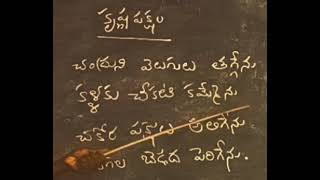 కృష్ణ పక్షం
చంద్రుని వెలుగులు తగ్గేను
కళ్లకు చీకటి కమ్మేను
చకోర పక్షులు అలిగేను
బెడద పెరిగేను.